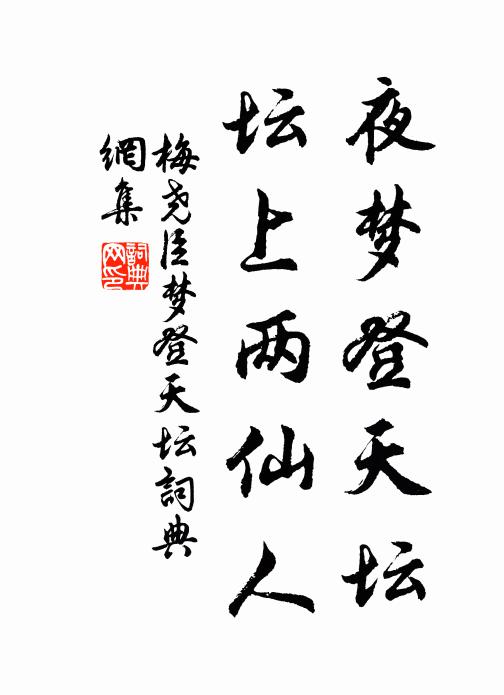 夜梦登天坛
坛上两仙人
梅尧臣梦登天坛詞典
網集
詞典
网印